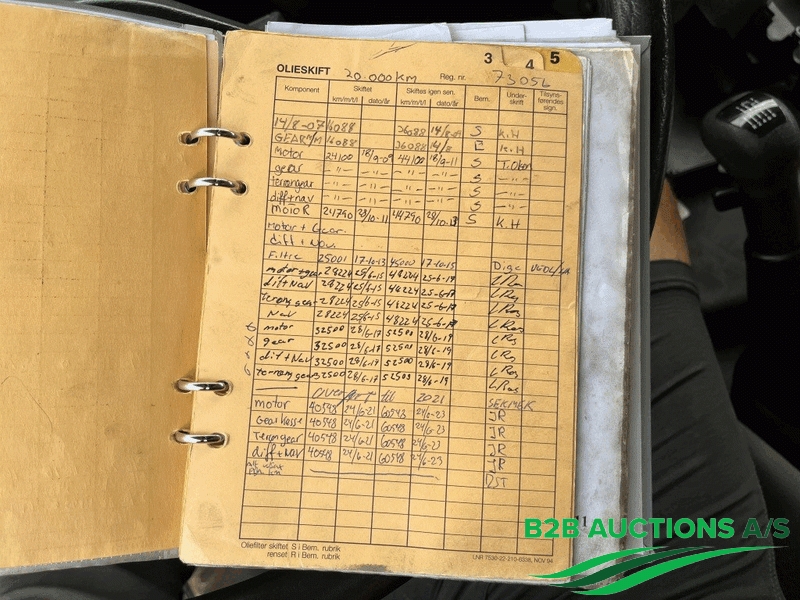 3 4 5
OLIESKIFT 20.000 KM Reg. nr. 73056
Komponent Skiftet Skiftes igen sen. Bem. Under-skrift Tilsyns-førendes sign.
km/m/t/l dato/år km/m/t/l dato/år
14/8-07 16088 26088 14/8-09 S K.H
GEAR M/M 16088 26088 14/8 K.H
Motor 24100 18/9-09 44100 18/9-11 S
gear -"- -"- -"- -"- S -"-
terrengear -"- -"- -"- -"- S -"-
diff+nav -"- -"- -"- -"- S -"-
MOTOR 24790 28/10-11 44790 28/10-13 S K.H
Motor + Gear
diff + Nav.
25001 17-10-13 45000 17-10-15
motor+gear 28224 25/6-15 48224 25-6-17
diff Nav 28224 25/6-15 48224 25-6-17
Terrengear 28224 25/6-15 48224 25-6-17
Nav 28224 25/6-15 48224 25-6-17
motor 32500 28/6-17 52500 28/6-19
gear 32500 28/6-17 52501 28/6-19
diff+Nav 32500 28/6-17 52500 28/6-19
terrengear 32500 28/6-17 52503 28/6-19
overført til 2021 SEKMEK
motor 40548 24/6-21 60548 24/6-23 JR
Gearkasse 40548 24/6-21 60548 24/6-23 JR
Terrengear 40548 24/6-21 60548 24/6-23 JR
diff+NAV 40548 24/6-21 60548 24/6-23 JR
DST
Oliefilter skiftet S i Bem. rubrik
renset R i Bem. rubrik
LNR 7530-22-210-6338, NOV 94
B2B AUCTIONS A/S